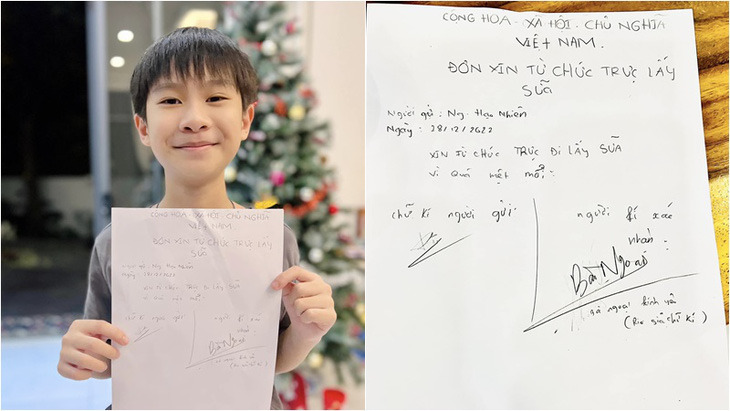 CỘNG HÒA - XÃ HỘI - CHỦ NGHĨA
VIỆT NAM.
ĐƠN XIN TỪ CHỨC TRỰC LẤY
SỮA
Người gửi : Ng. Hạo Nhiên
Ngày : 28/12/2022
XIN TỪ CHỨC TRỰC ĐI LẤY SỮA
Vì Quá mệt mỏi.
chữ kí người gửi
người kí xác
nhận.
Bà Ngoại
bà ngoại kính yêu